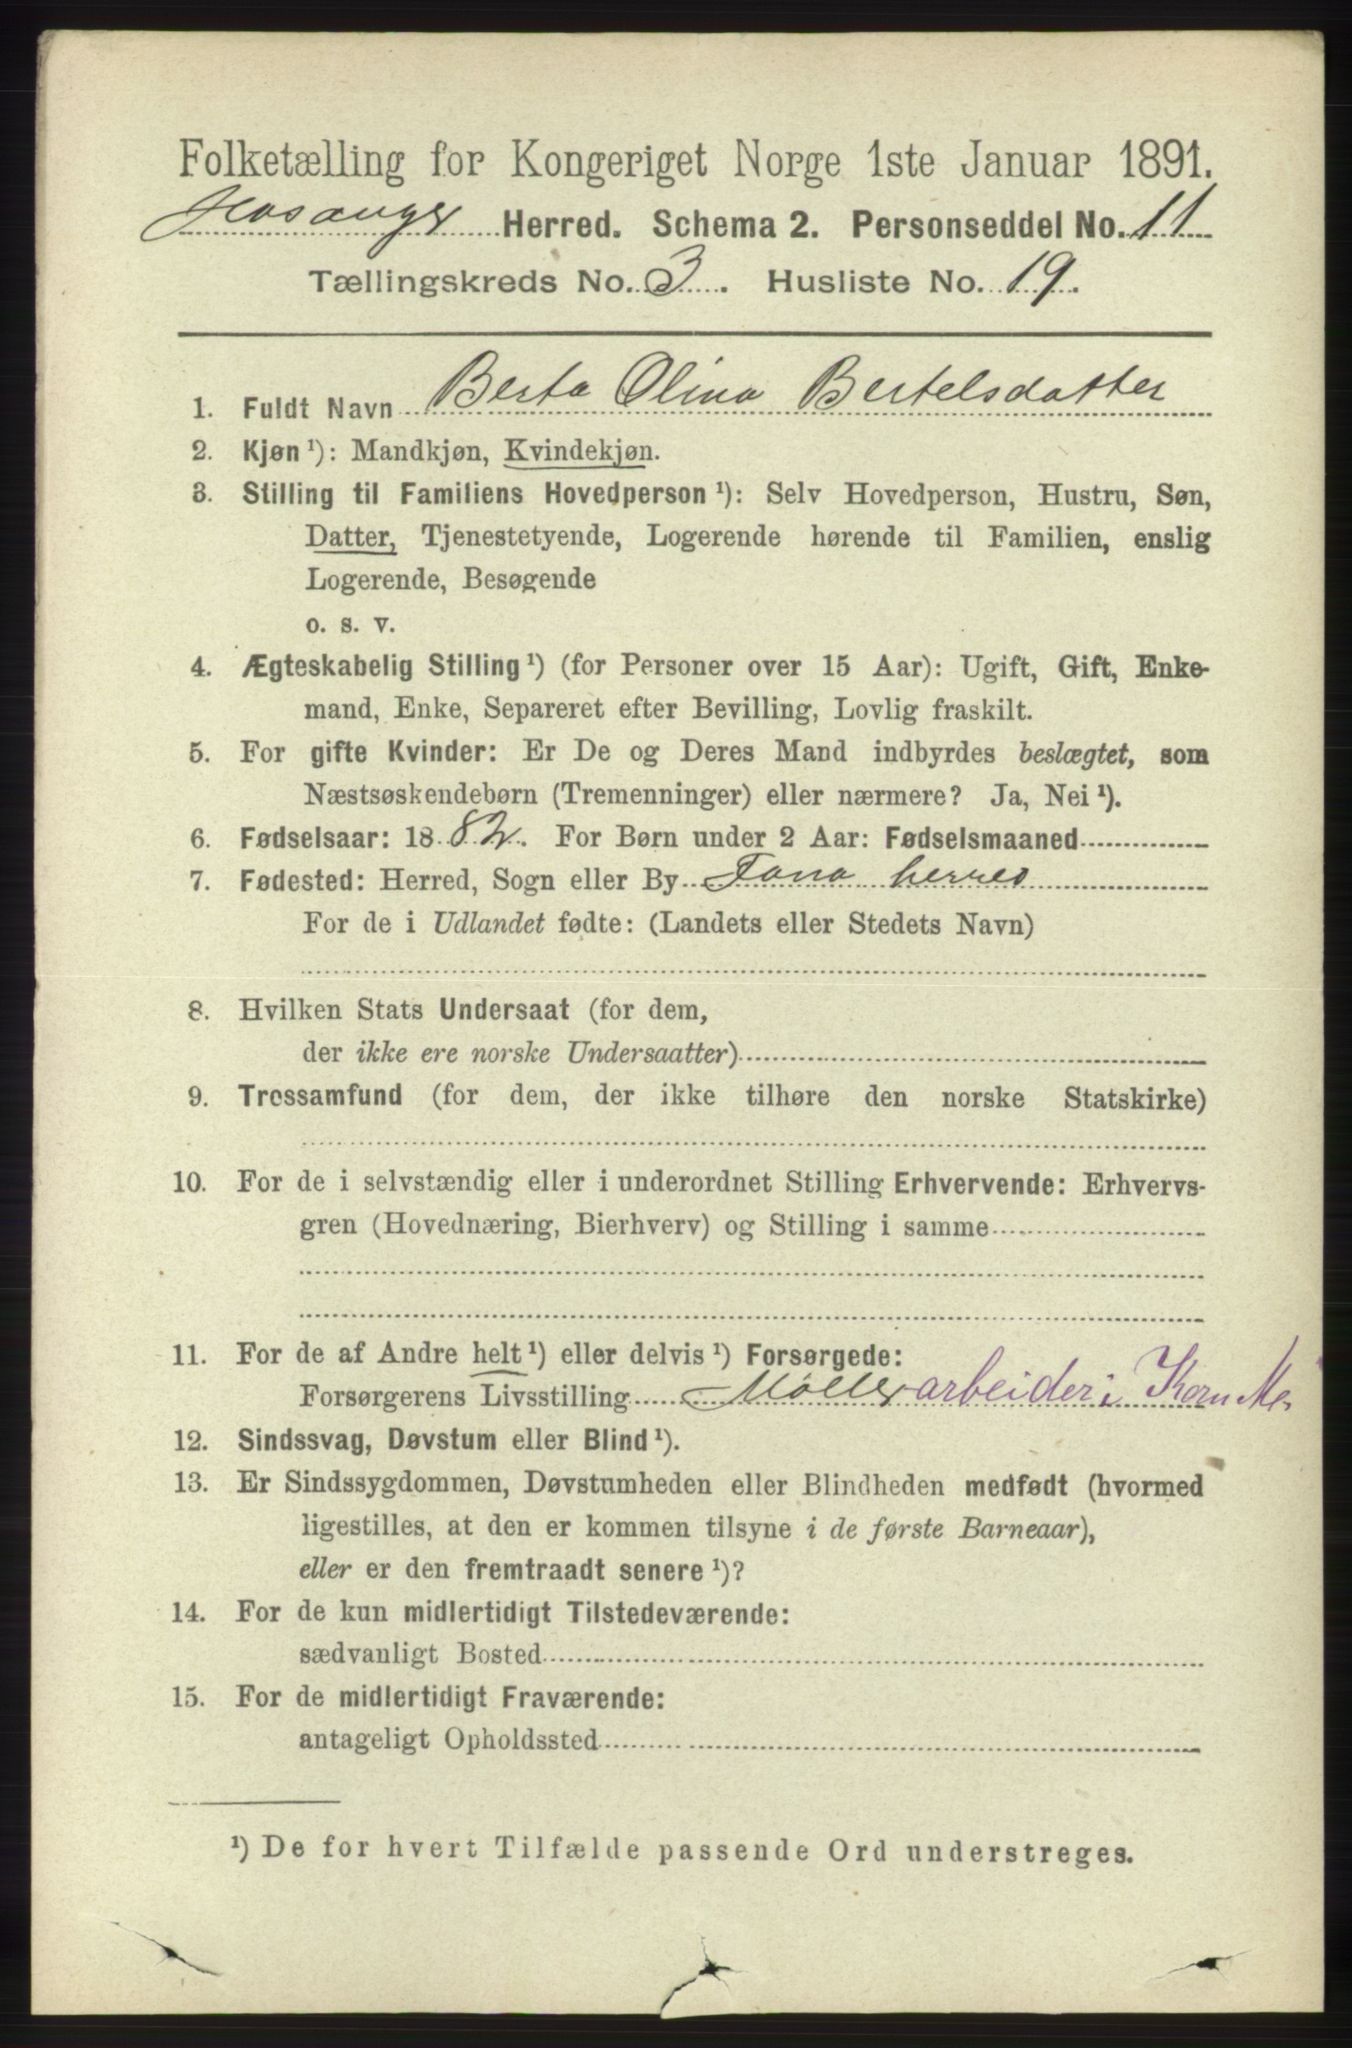 Folketælling for Kongeriget Norge 1ste Januar 1891.
Hosanger Herred. Schema 2. Personseddel No. 11
Tællingskreds No. 3. Husliste No. 19.
1. Fuldt Navn Berta Olina Bertelsdatter
2. Kjøn ¹): Mandkjøn, Kvindekjøn.
3. Stilling til Familiens Hovedperson ¹): Selv Hovedperson, Hustru, Søn,
Datter, Tjenestetyende, Logerende hørende til Familien, enslig
Logerende, Besøgende
o. s. v.
4. Ægteskabelig Stilling ¹) (for Personer over 15 Aar): Ugift, Gift, Enke-
mand, Enke, Separeret efter Bevilling, Lovlig fraskilt.
5. For gifte Kvinder: Er De og Deres Mand indbyrdes beslægtet, som
Næstsøskendebørn (Tremenninger) eller nærmere? Ja, Nei ¹).
6. Fødselsaar: 1882. For Børn under 2 Aar: Fødselsmaaned
7. Fødested: Herred, Sogn eller By Fana herred
For de i Udlandet fødte: (Landets eller Stedets Navn)
8. Hvilken Stats Undersaat (for dem,
der ikke ere norske Undersaatter)
9. Trossamfund (for dem, der ikke tilhøre den norske Statskirke)
10. For de i selvstændig eller i underordnet Stilling Erhvervende: Erhvervs-
gren (Hovednæring, Bierhverv) og Stilling i samme
11. For de af Andre helt ¹) eller delvis ¹) Forsørgede:
Forsørgerens Livsstilling Møllerarbeider i Korn Mø
12. Sindssvag, Døvstum eller Blind ¹).
13. Er Sindssygdommen, Døvstumheden eller Blindheden medfødt (hvormed
ligestilles, at den er kommen tilsyne i de første Barneaar),
eller er den fremtraadt senere ¹)?
14. For de kun midlertidigt Tilstedeværende:
sædvanligt Bosted
15. For de midlertidigt Fraværende:
antageligt Opholdssted
¹) De for hvert Tilfælde passende Ord understreges.